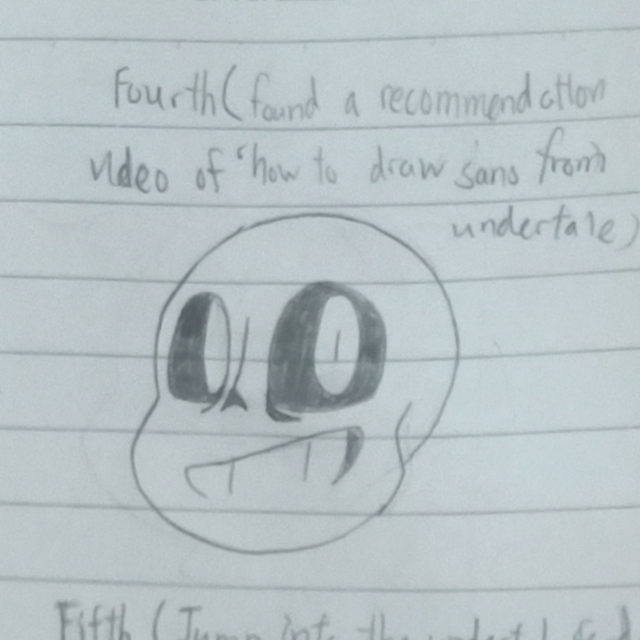 Fourth (found a recommendation
video of "how to draw sans from
undertale)
Fifth (Jump into the